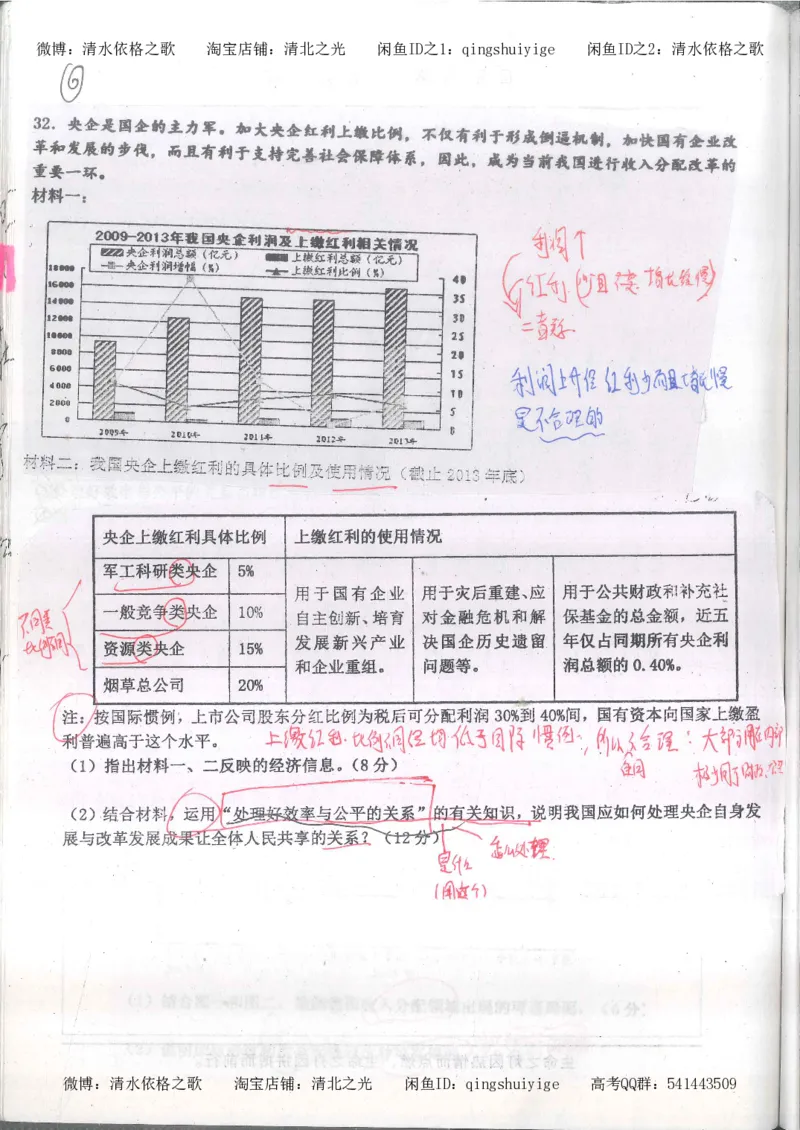 微博：清水依格之歌 淘宝店铺：清北之光 闲鱼ID之1：qingshuiyige 闲鱼ID之2：清水依格之歌
⑥
32．央企是国企的主力军。加大央企红利上缴比例，不仅有利于形成倒逼机制，加快国有企业改
革和发展的步伐，而且有利于支持完善社会保障体系，因此，成为当前我国进行收入分配改革的
重要一环。
材料一：
2009-2013年我国央企利润及上缴红利相关情况
央企利润总额（亿元） 上缴红利总额（亿元）
央企利润增幅（%） 上缴红利比例（%）
18000
16000
14000
12000
10000
8000
6000
4000
2000
0
40
35
30
25
20
15
10
5
0
2009年 2010年 2011年 2012年 2013年
利润个
红利
利润上升但红利少而且增长慢
是不合理的
材料二：我国央企上缴红利的具体比例及使用情况（截止 2013 年底）
央企上缴红利具体比例 上缴红利的使用情况
军工科研类央企 5%
一般竞争类央企 10%
资源类央企 15%
烟草总公司 20%
用于国有企业
自主创新、培育
发展新兴产业
和企业重组。
用于灾后重建、应
对金融危机和解
决国企历史遗留
问题等。
用于公共财政和补充社
保基金的总金额，近五
年仅占同期所有央企利
润总额的 0.40%。
不同类
比例不同
注：按国际惯例，上市公司股东分红比例为税后可分配利润 30%到 40%间，国有资本向国家上缴盈
利普遍高于这个水平。
上缴红利比例调但均低于国际惯例
(1）指出材料一、二反映的经济信息。（8 分）
（2）结合材料，运用“处理好效率与公平的关系”的有关知识，说明我国应如何处理央企自身发
展与改革发展成果让全体人民共享的关系？（12 分）
是什么
怎么处理
微博：清水依格之歌 淘宝店铺：清北之光 闲鱼ID：qingshuiyige 高考QQ群：541443509